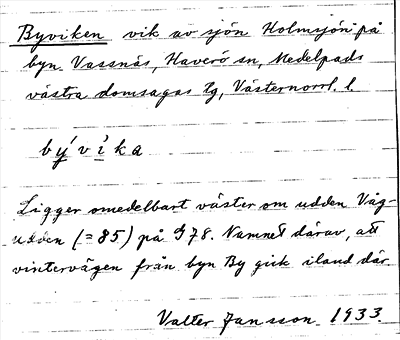 Byviken vik av sjön Holmsjön på
byn Vassnäs, Haverö sn, Medelpads
västra domsagas lg, Västernorrl. l.
bývı̀ka
Ligger omedelbart väster om udden Våg-
udden (=85) på G78. Namnet därav, att
vintervägen från byn By gick iland där
Valter Jansson 1933.